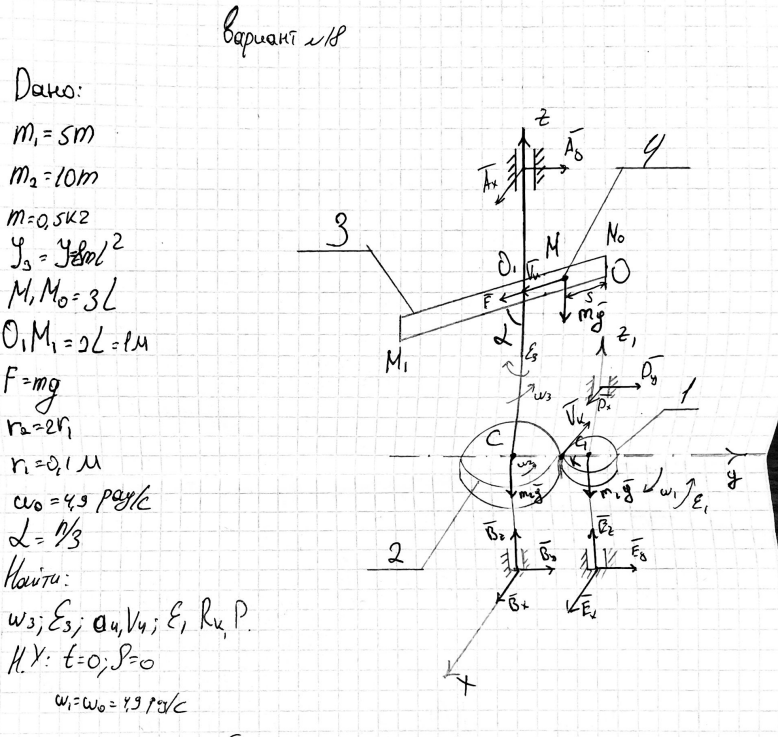 Вариант №18
Дано:
m₁ = 5m
m₂ = 10m
m = 0,5 кг
M₁M₀ = 3L
O₁M₁ = 2L = 1м
F = mg
r₂ = 2r₁
r₁ = 0,1 м
ω₀ = 4,9 рад/с
α = π/3
Найти:
ω₃; ε₃; a₄, V₄; ε₁ Rₖ, P.
Н.У: t=0; S=0
ω₁ = ω₀ = 4,9 рад/с
z
A̅y
A̅x
4
3
O₁
V̅
M
M₀
O
F̅
S
α
mg̅
M₁
ε₃
ω₃
z₁
D̅y
D̅x
1
V̅k
C
C₁
K
ω₃
y
m₂g̅
m₁g̅
ω₁
ε₁
2
B̅z
B̅y
B̅x
E̅z
E̅y
E̅x
x